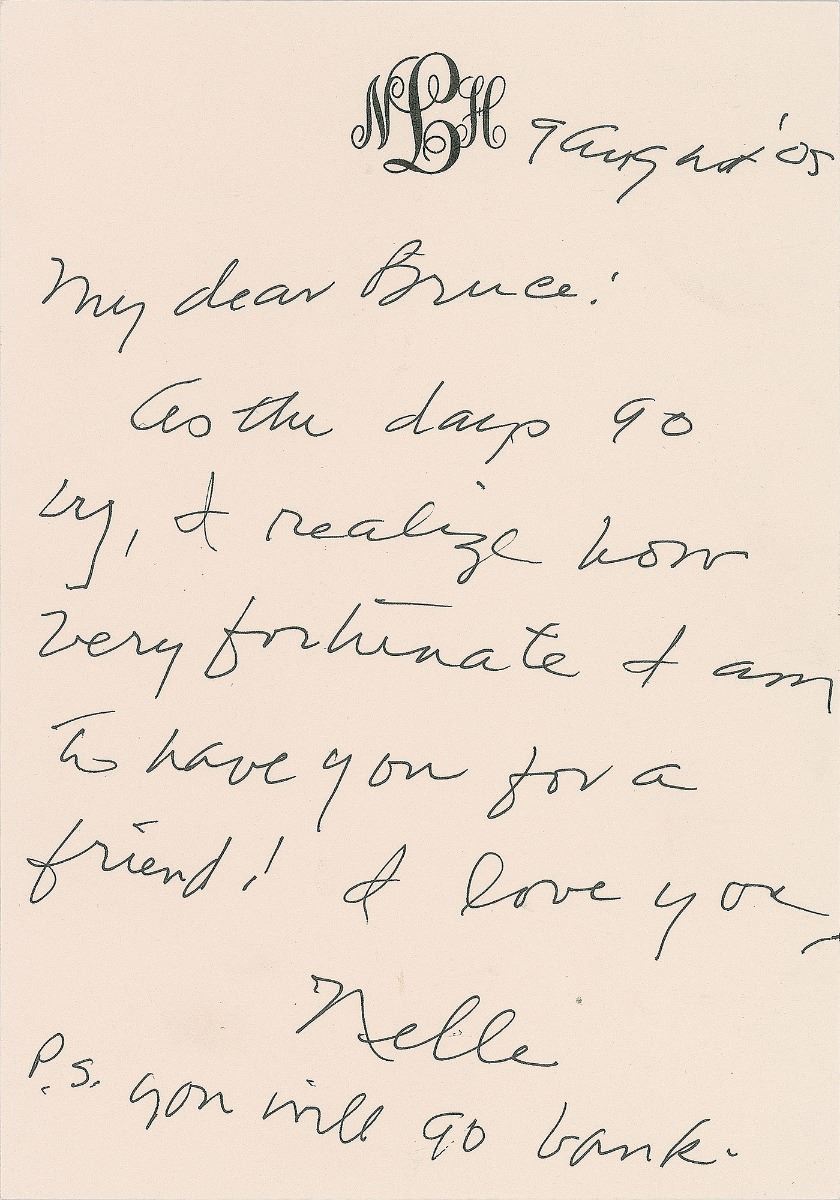 NLH
9 August '05
My dear Bruce:
As the days go
by, I realize how
very fortunate I am
to have you for a
friend! I love you,
Nelle
P.S. you will go bank.